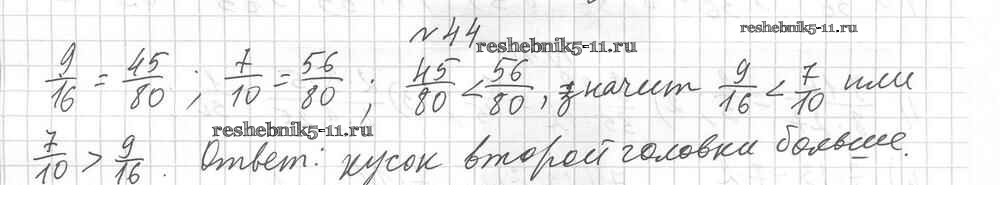 №44
reshebnik5-11.ru
reshebnik5-11.ru
9/16 = 45/80 ; 7/10 = 56/80 ; 45/80 < 56/80, значит 9/16 < 7/10 или
reshebnik5-11.ru
7/10 > 9/16. Ответ: кусок второй головки больше.